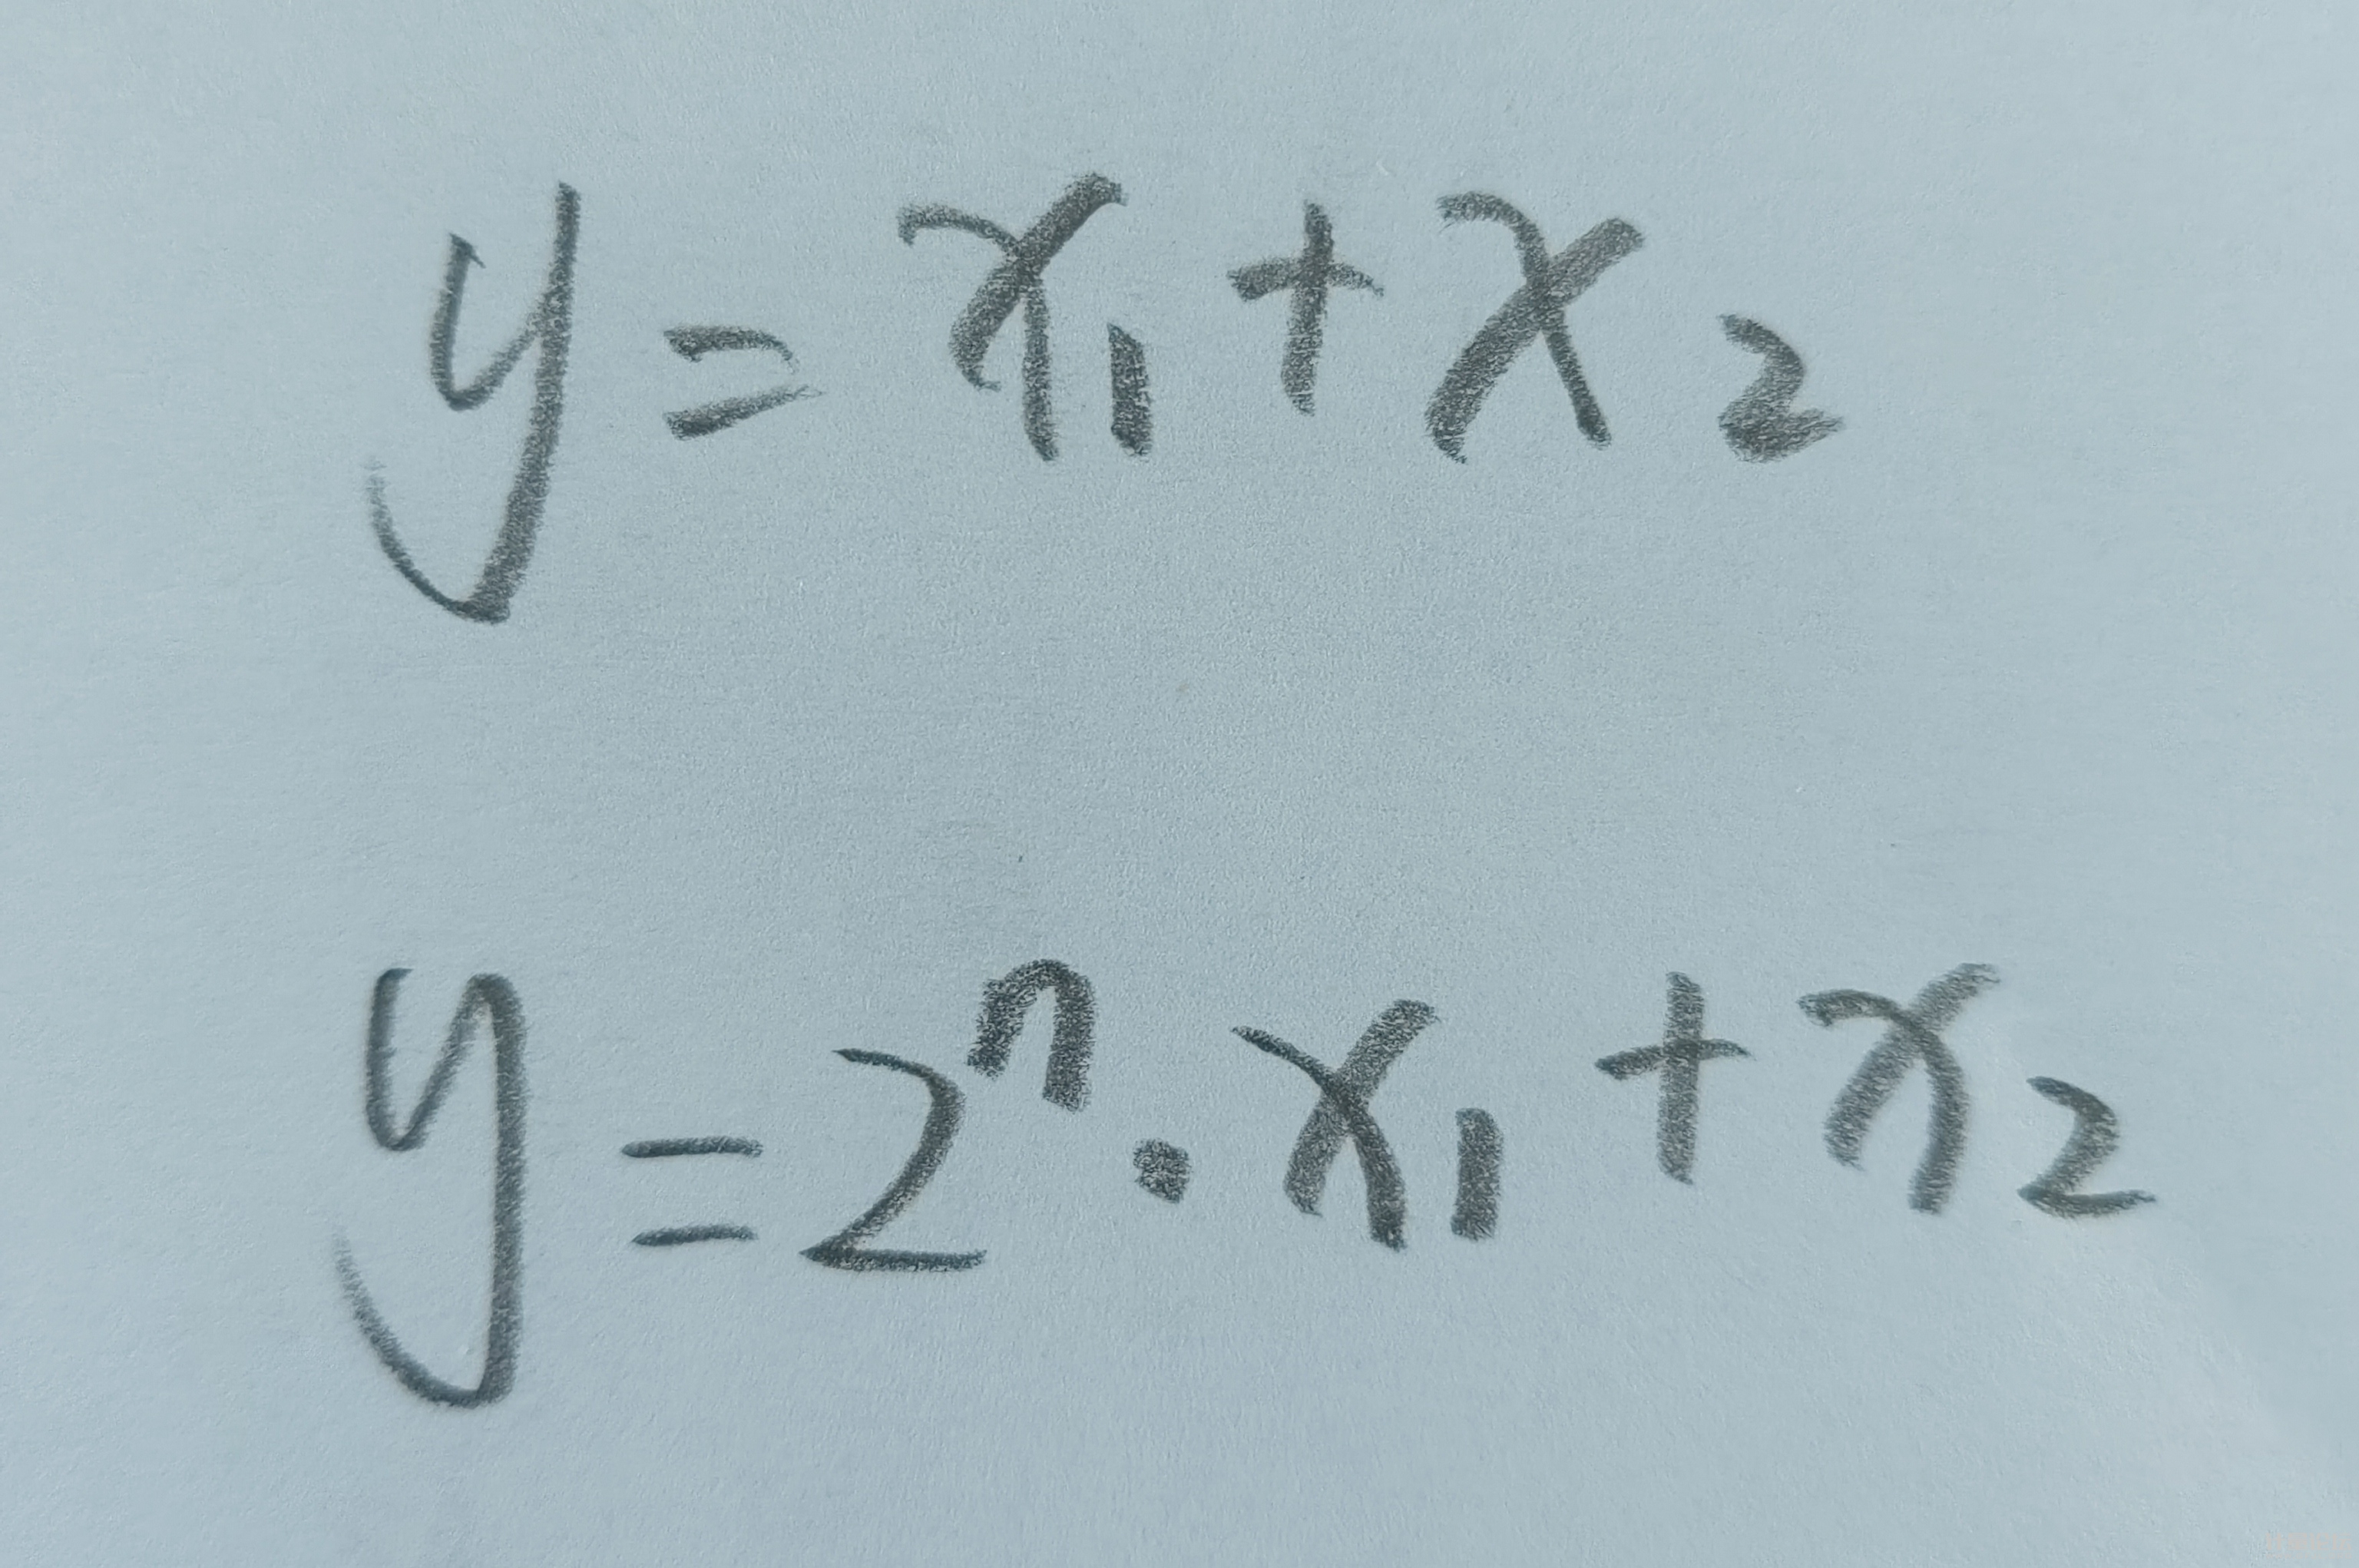 y = x₁ + x₂
y = 2ⁿ · x₁ + x₂